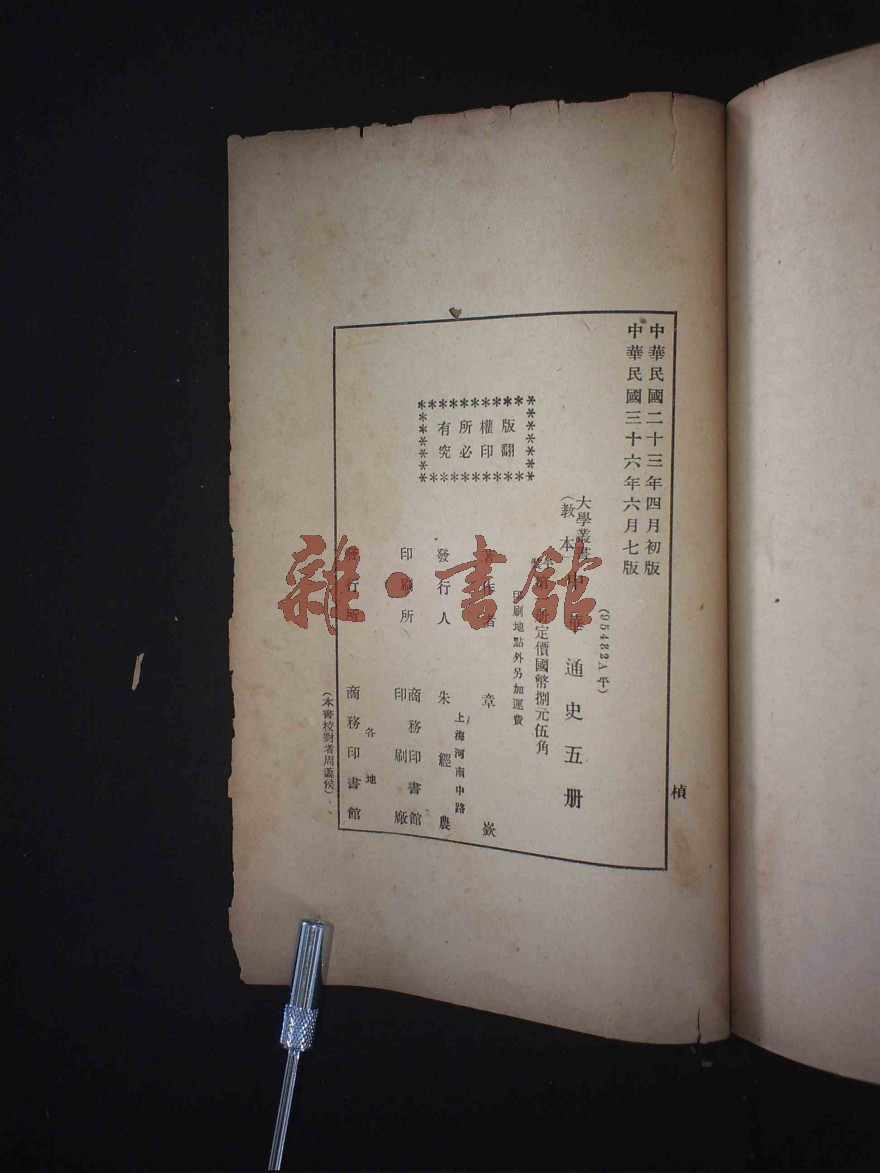 中華民國二十三年四月初版
中華民國三十六年六月七版
(95482A平)
大學叢書
(教本)
中華通史五册
定價國幣捌元伍角
印刷地點外另加運費
版權所有
翻印必究
著作者 章嶔
上海河南中路
發行人 朱經農
印刷所 商務印書館
印刷廠
各地
發行所 商務印書館
(本書校對者周 侯)
楨
雜·書館